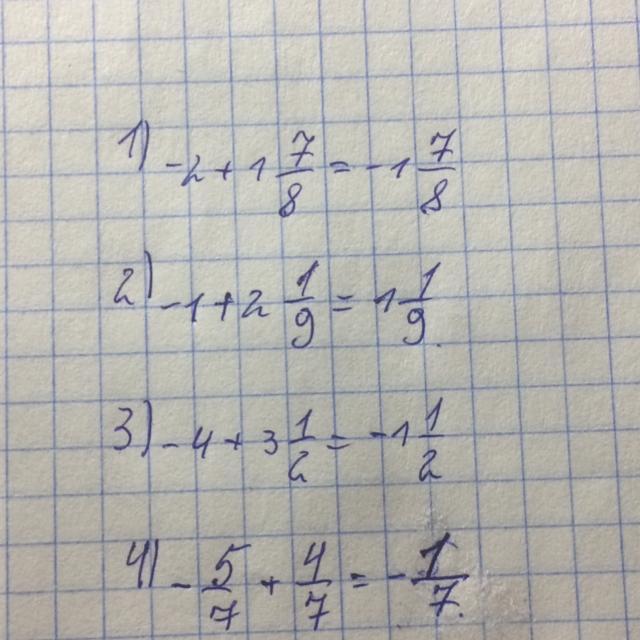 1) -2 + 1 7/8 = -1 7/8
2) -1 + 2 1/9 = 1 1/9
3) -4 + 3 1/2 = -1 1/2
4) - 5/7 + 4/7 = - 1/7